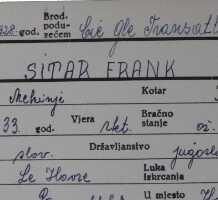 1928. god. Brod. podu- zećem Cie Gle Transatl
SITAR FRANK
Mekinje Kotar
33. god. Vjera rkt. Bračno stanje ož.
slov. Državljanstvo jugosl
Le Havre Luka iskrcanja
U mjesto